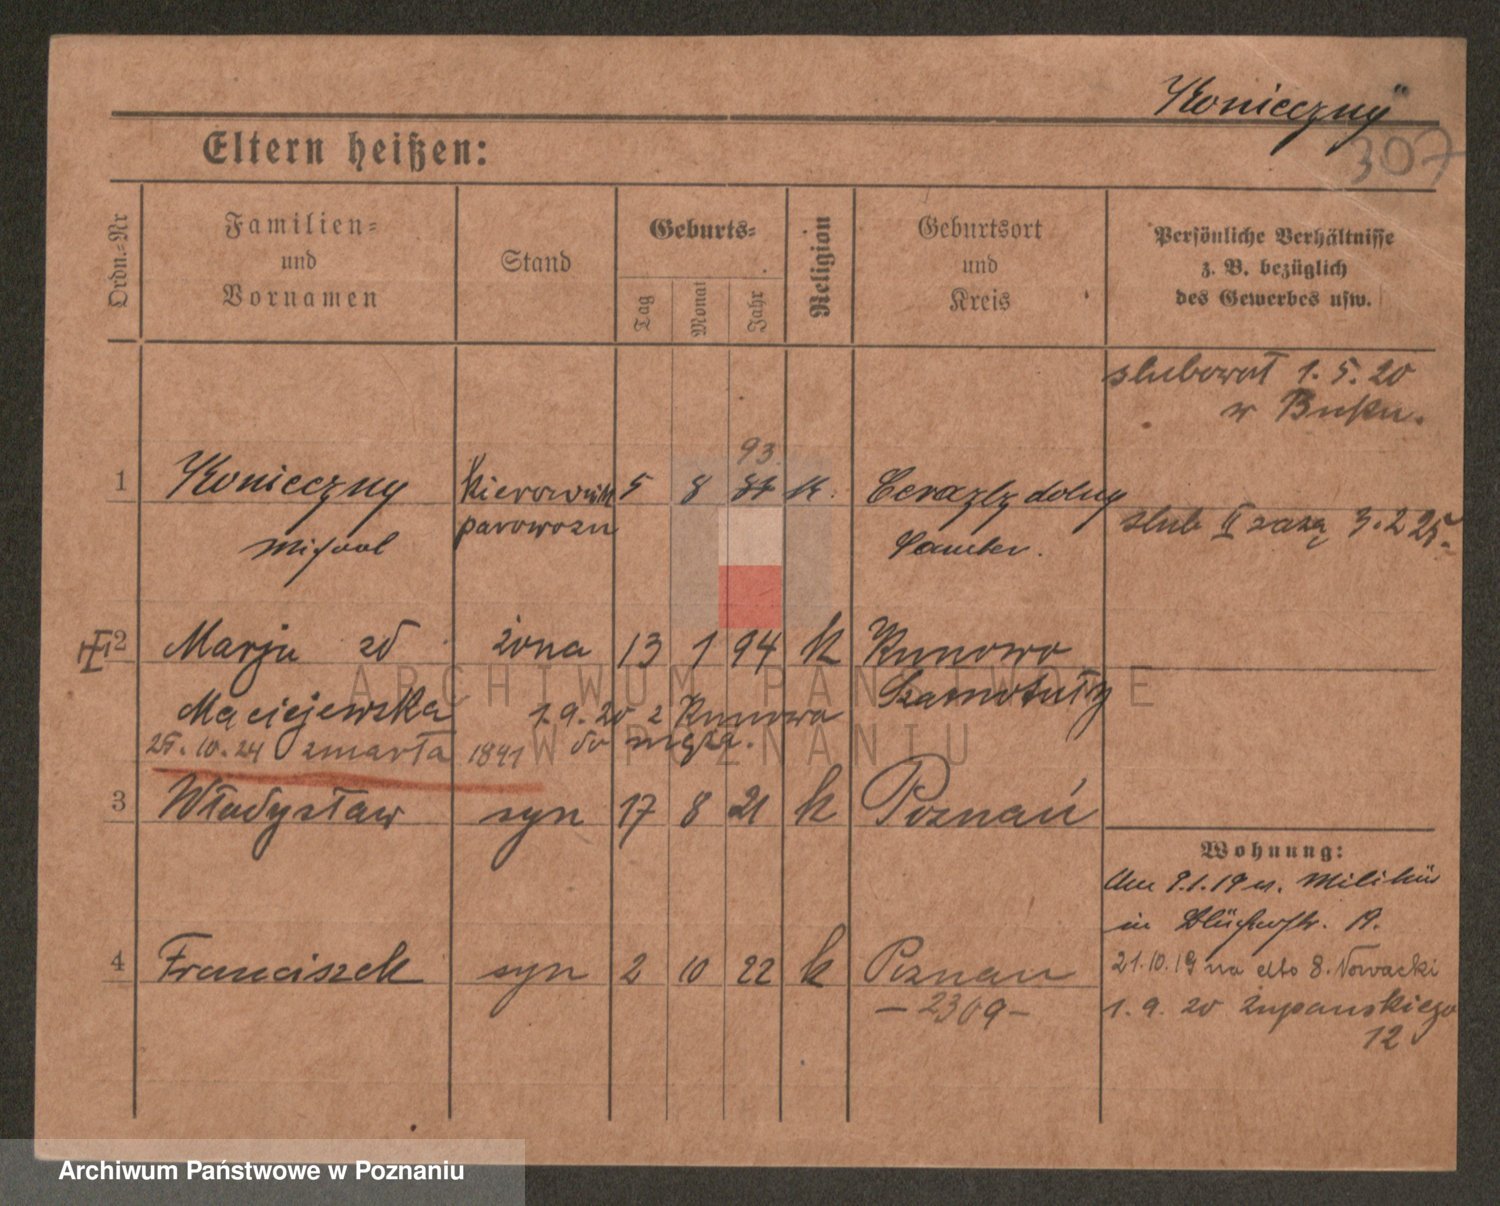 "Konieczny"
307
Eltern heißen:
Ordn.=Nr
Familien=
und
Vornamen
Stand
Geburts=
Tag
Monat
Jahr
Religion
Geburtsort
und
Kreis
Persönliche Verhältnisse
z. B. bezüglich
des Gewerbes usw.
slubował 1. 5. 20
w Buku.
1 Konieczny kierownik 5 8 93 k. dolny
parowozu
slub II razą 3. 2 25.
2 Marja zd żona 13 1 94 k Kunowo
Szamotuły
Maciejewska 1. 9. 20 z Kunowa
do męża.
25. 10. 24 zmarła 1841
3 Władysław syn 17 8 21 k Poznań
Wohnung:
Am 9.1.19 v. Militär
in Blücherstr. 19.
4 Franciszek syn 2 10 22 k Poznan
21. 10. 19 na dto 8. Nowacki
— 2309 —
1. 9. 20 Żupanskiego
12
ARCHIWUM PAŃSTWOWE
W POZNANIU
Archiwum Państwowe w Poznaniu